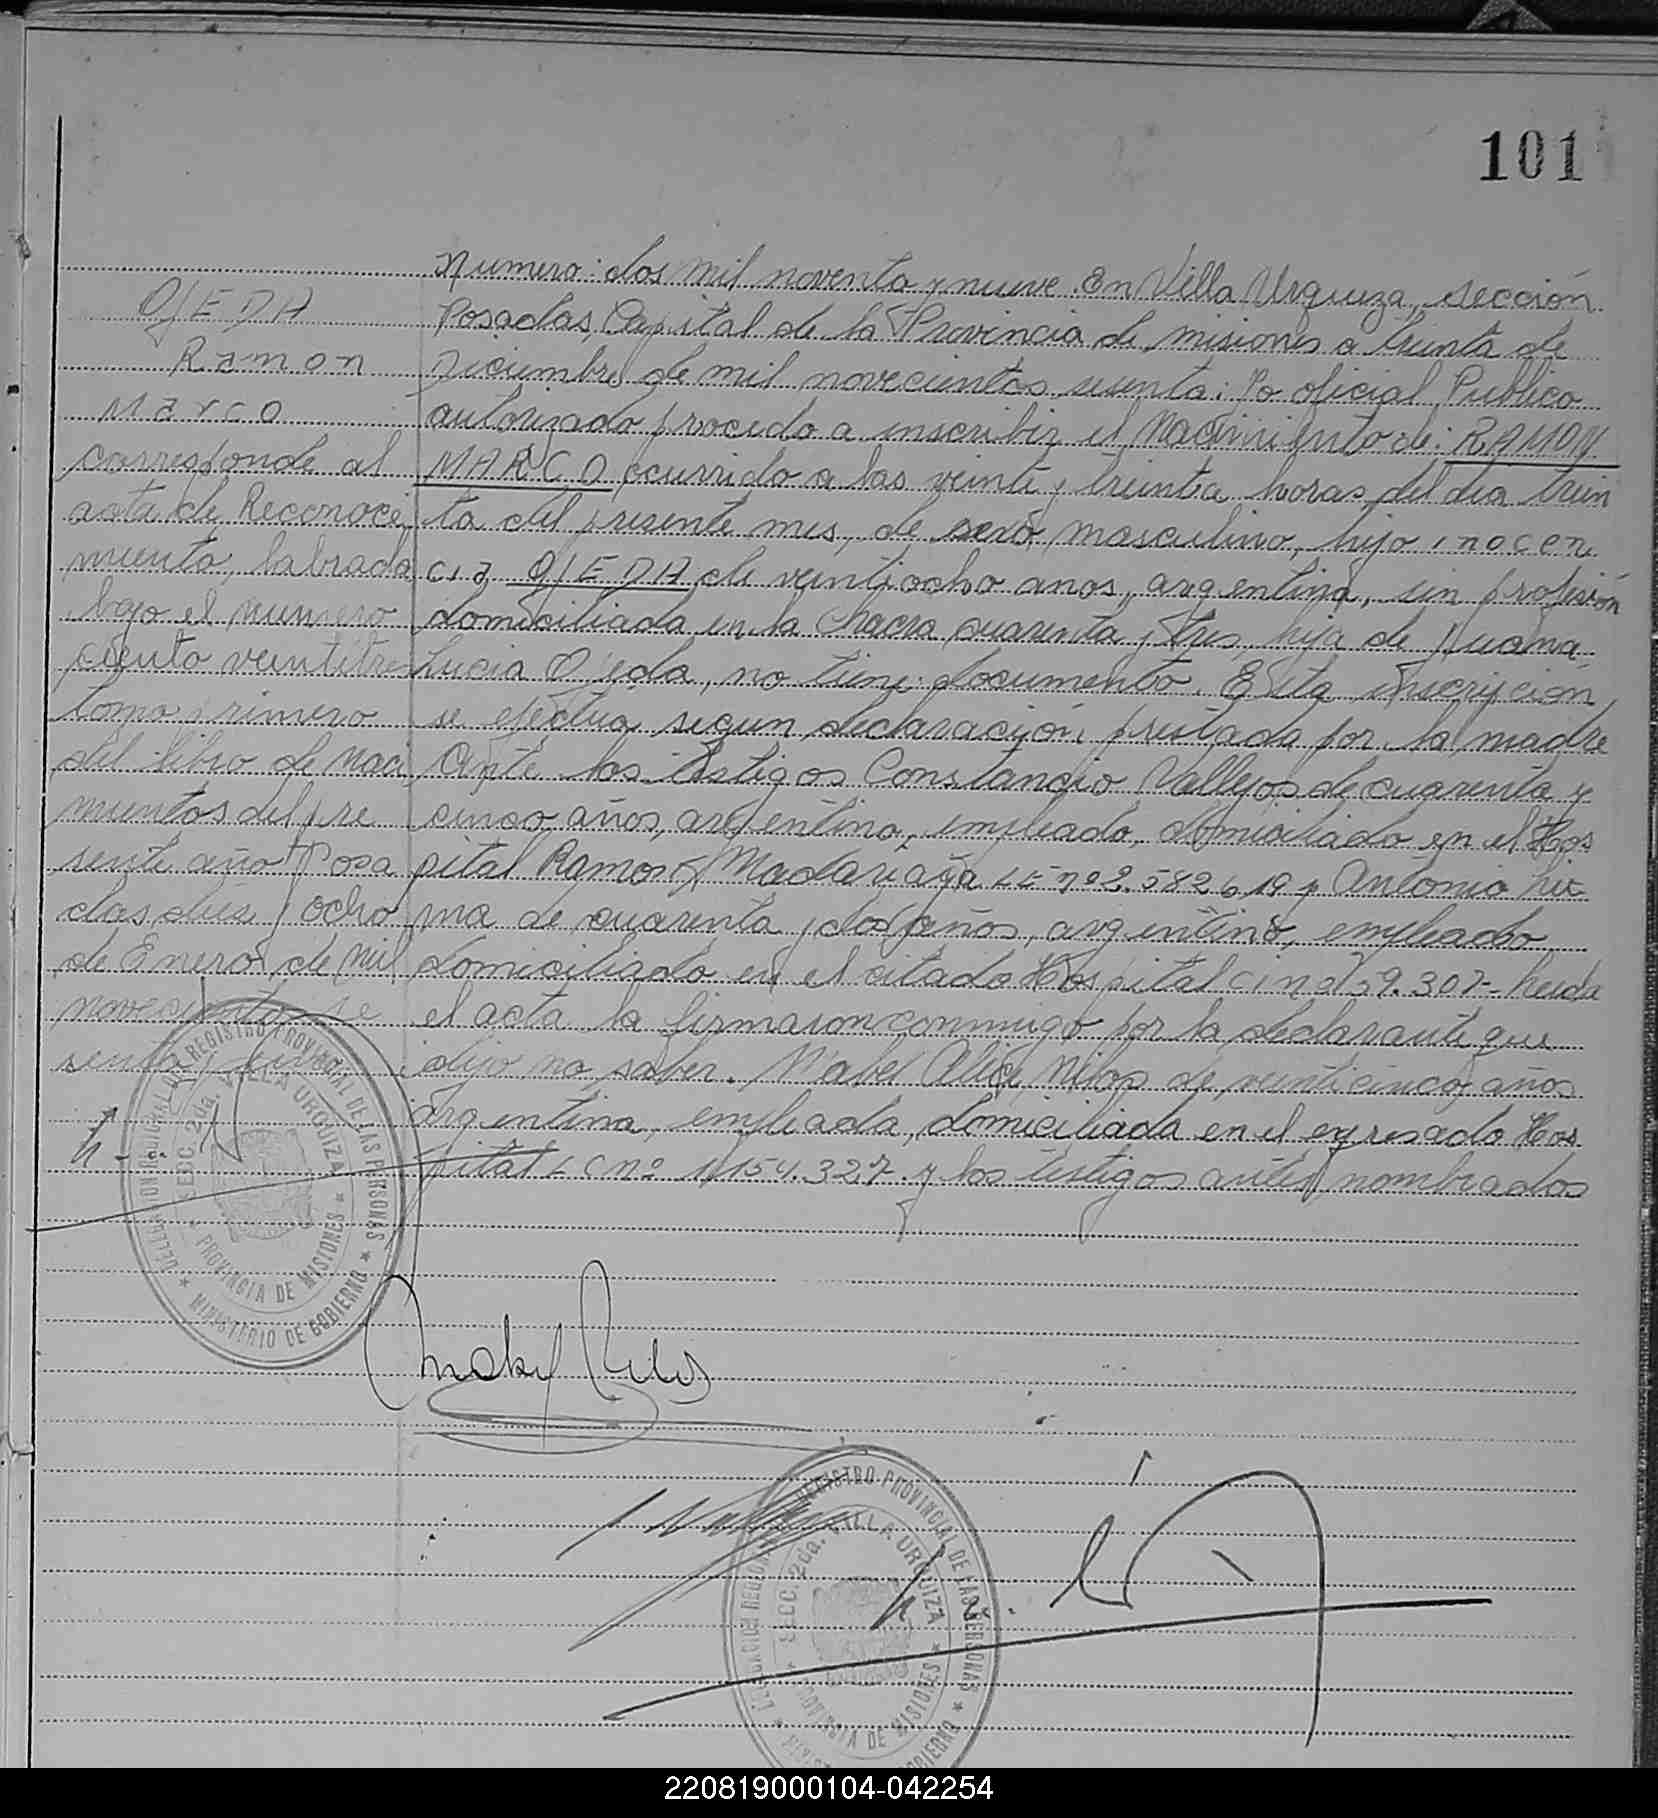 101
Numero: dos mil noventa y nueve. En Villa Urquiza, sección
Posadas, Capital de la Provincia de misiones a treinta de
Diciembre de mil novecientos sesenta: Yo oficial Publico
autorizado procedo a inscribir el Nacimiento de: RAMON
MARCO ocurrido a las veinte y treinta horas del dia trein
ta del presente mes, de sexo masculino, hijo inocen
cia OJEDA de veintiocho anos, argentina, sin profesión
domiciliada en la Chacra cuarenta y tres, hija de Juana
Lucia Ojeda, no tiene documento. Esta inscripcion
se efectua segun declaración prestada por la madre
Ante los testigos Constancio Vallejos de cuarenta y
cinco años, argentino, empleado, domiciliado en el Hos
pital Ramon Madariaga LE nº 2.582.619 y Antonio
de cuarenta y dos años, argentino, empleado
domiciliado en el citado Hospital CI nº 39.307- leida
el acta la firmaron conmigo por la declarante que
dijo no saber. Mabel Alice de veinticinco años
argentina, empleada, domiciliada en el expresado Hos
pital LC nº 1.154.327. y los testigos antes nombrados
OJEDA
Ramon
Marco
corresponde al
acta de Reconoci
miento, labrada
bajo el numero
ciento veintitres
tomo primero
del libro de naci
mientos del pre
sente año Posa
das, dies y ocho
de Enero de mil
novecientos se
senta y uno
DELEGACION REGIONAL DEL REGISTRO PROVINCIAL DE LAS PERSONAS
SECC. 2da. VILLA URQUIZA
PROVINCIA DE MISIONES
MINISTERIO DE GOBIERNO
DELEGACION REGIONAL DEL REGISTRO PROVINCIAL DE LAS PERSONAS
SECC. 2da. VILLA URQUIZA
PROVINCIA DE MISIONES
220819000104-042254